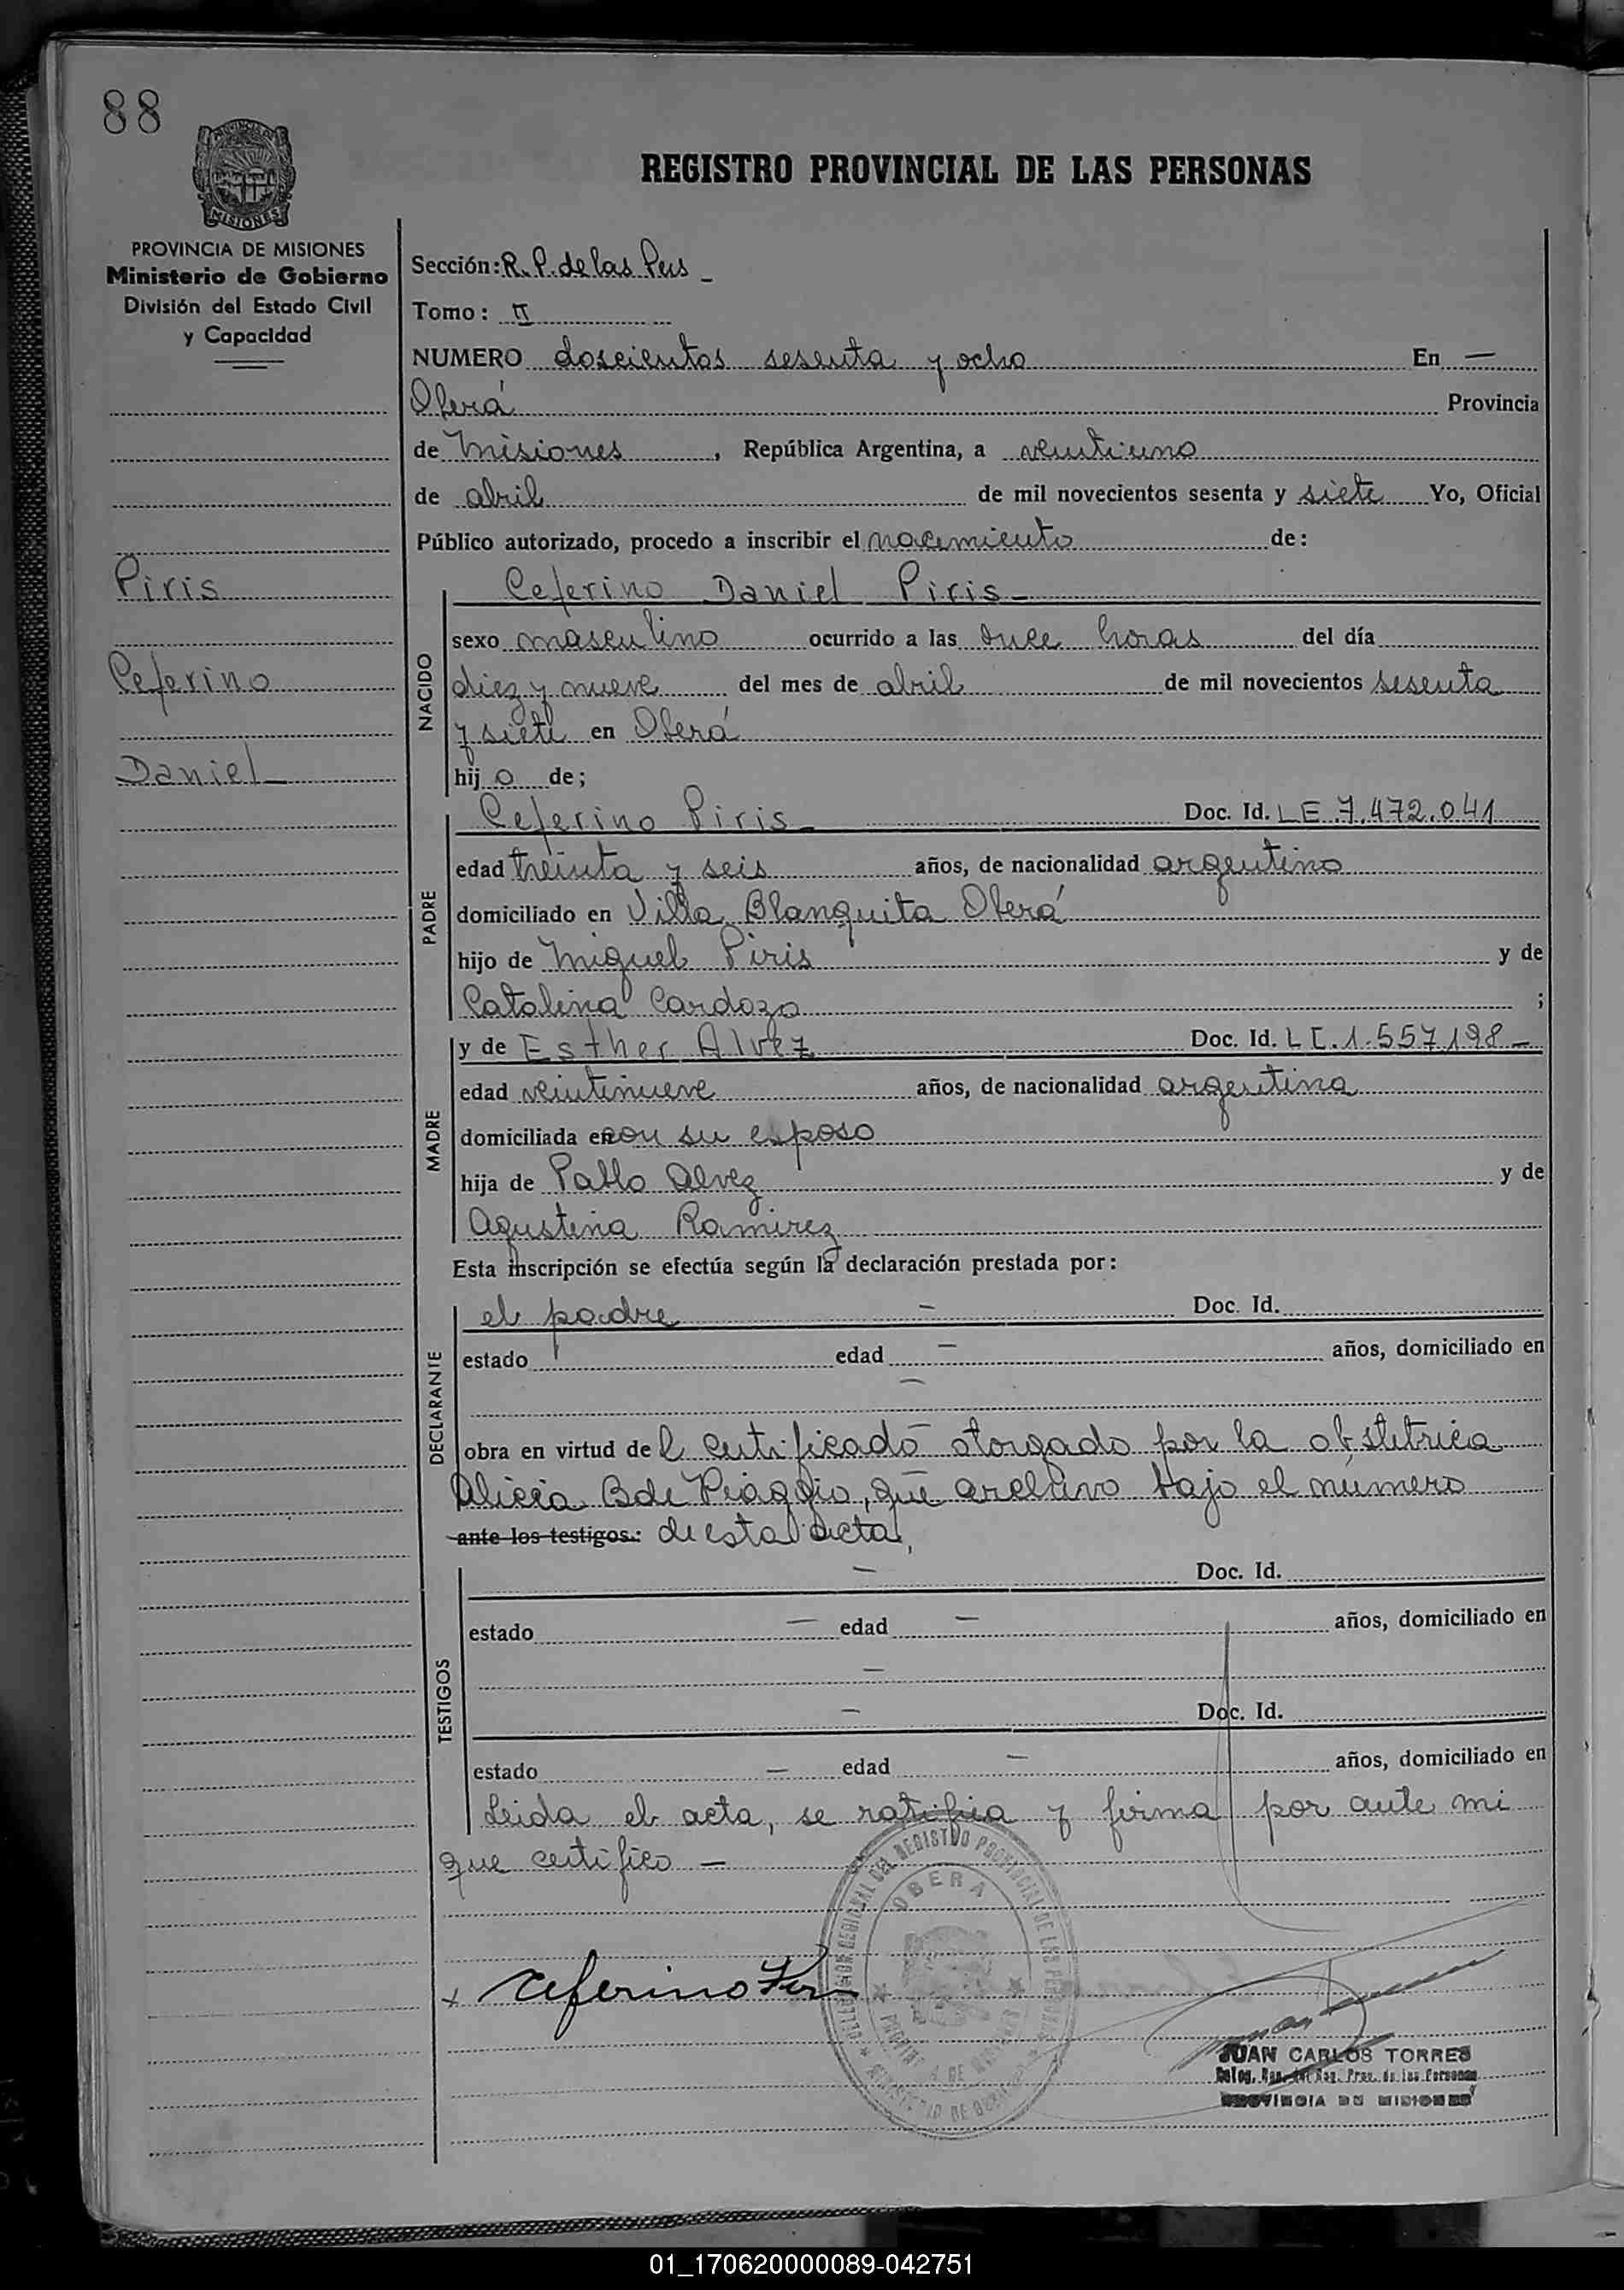 88
PROVINCIA DE
MISIONES
REGISTRO PROVINCIAL DE LAS PERSONAS
PROVINCIA DE MISIONES
Ministerio de Gobierno
División del Estado Civil
y Capacidad
Piris
Ceferino
Daniel
Sección: R. P. de las Pers
Tomo: II
NUMERO doscientos sesenta y ocho En —
Oberá Provincia
de Misiones, República Argentina, a veintiuno
de abril de mil novecientos sesenta y siete Yo, Oficial
Público autorizado, procedo a inscribir el nacimiento de:
NACIDO
Ceferino Daniel Piris
sexo masculino ocurrido a las once horas del día
diez y nueve del mes de abril de mil novecientos sesenta
y siete en Oberá
hijo de;
PADRE
Ceferino Piris Doc. Id. LE 7.472.041
edad treinta y seis años, de nacionalidad argentino
domiciliado en Villa Blanquita Oberá
hijo de Miguel Piris y de
Catalina Cardozo ;
MADRE
y de Esther Alvez Doc. Id. LC. 1.557.198 —
edad veintinueve años, de nacionalidad argentina
domiciliada en con su esposo
hija de Pablo Alvez y de
Agustina Ramirez
Esta inscripción se efectúa según la declaración prestada por:
DECLARANTE
el padre — Doc. Id.
estado edad — años, domiciliado en
—
obra en virtud del certificado otorgado por la obstetrica
Alicia B de Piaggio, que archivo bajo el número
ante los testigos: de esta acta,
TESTIGOS
— Doc. Id.
estado — edad — años, domiciliado en
—
— Doc. Id.
estado — edad — años, domiciliado en
Leida el acta, se ratifica y firma por ante mi
que certifico —
DEL REGISTRO PROVINCIAL DE LAS PERSONAS
OBERA
MINISTERIO DE GOBIERNO
x Ceferino Piris
JUAN CARLOS TORRES
Deleg. Reg. del Reg. Prov. de las Personas
PROVINCIA DE MISIONES
01_170620000089-042751